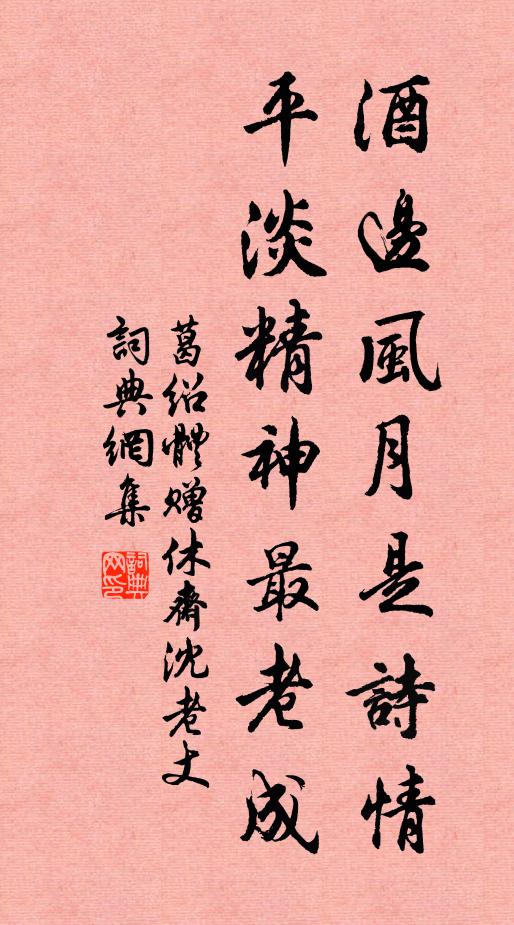 酒邊風月是詩情
平淡精神最老成
葛紹體贈休齋沈老丈
詞典網集
詞典網印